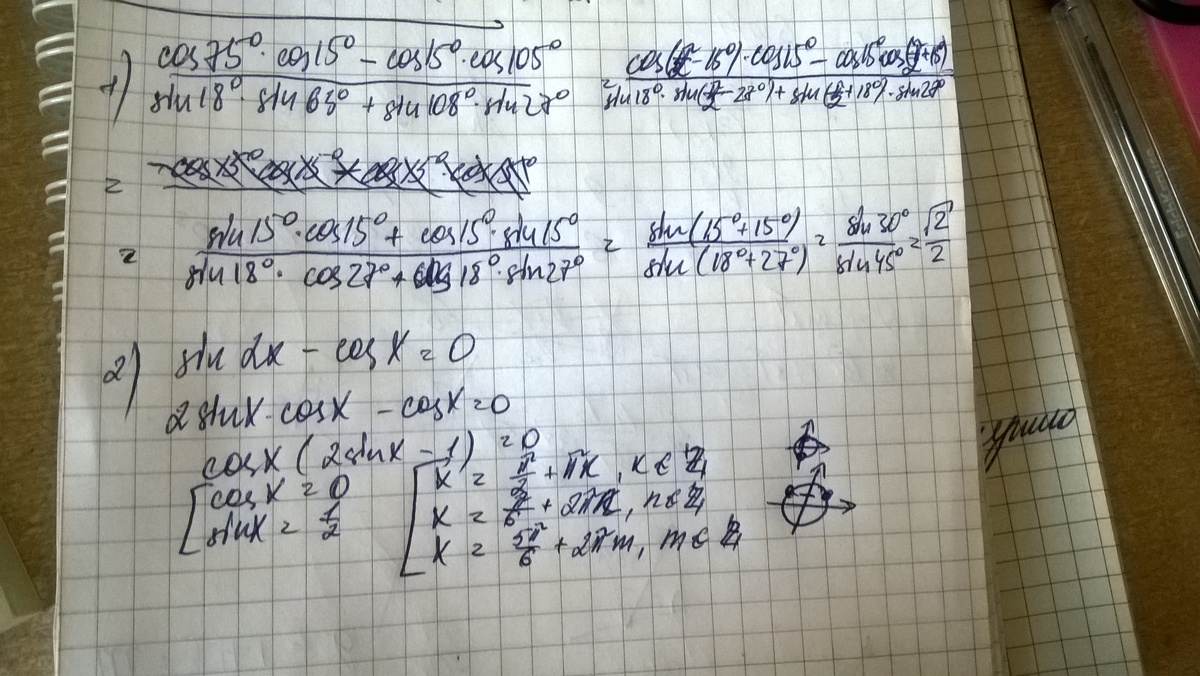 1) (cos75°·cos15° − cos15°·cos105°)/(sin18°·sin63° + sin108°·sin27°) = (cos(π/2−15°)·cos15° − cos15°cos(π/2+15°))/(sin18°·sin(π/2−27°)+sin(π/2+18°)·sin27°)
=
= (sin15°·cos15° + cos15°·sin15°)/(sin18°·cos27° + cos18°·sin27°) = sin(15°+15°)/sin(18°+27°) = sin30°/sin45° = √2/2
2) sin 2x − cosx = 0
2sinx·cosx − cosx = 0
cosx (2sinx − 1) = 0
[ cosx = 0 [ x = π/2 + πk, k ∈ ℤ
sinx = 1/2 x = π/6 + 2πn, n ∈ ℤ
x = 5π/6 + 2πm, m ∈ ℤ